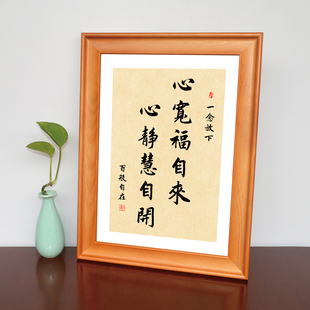 一念放下
心寬福自來
心靜慧自開
百般自在